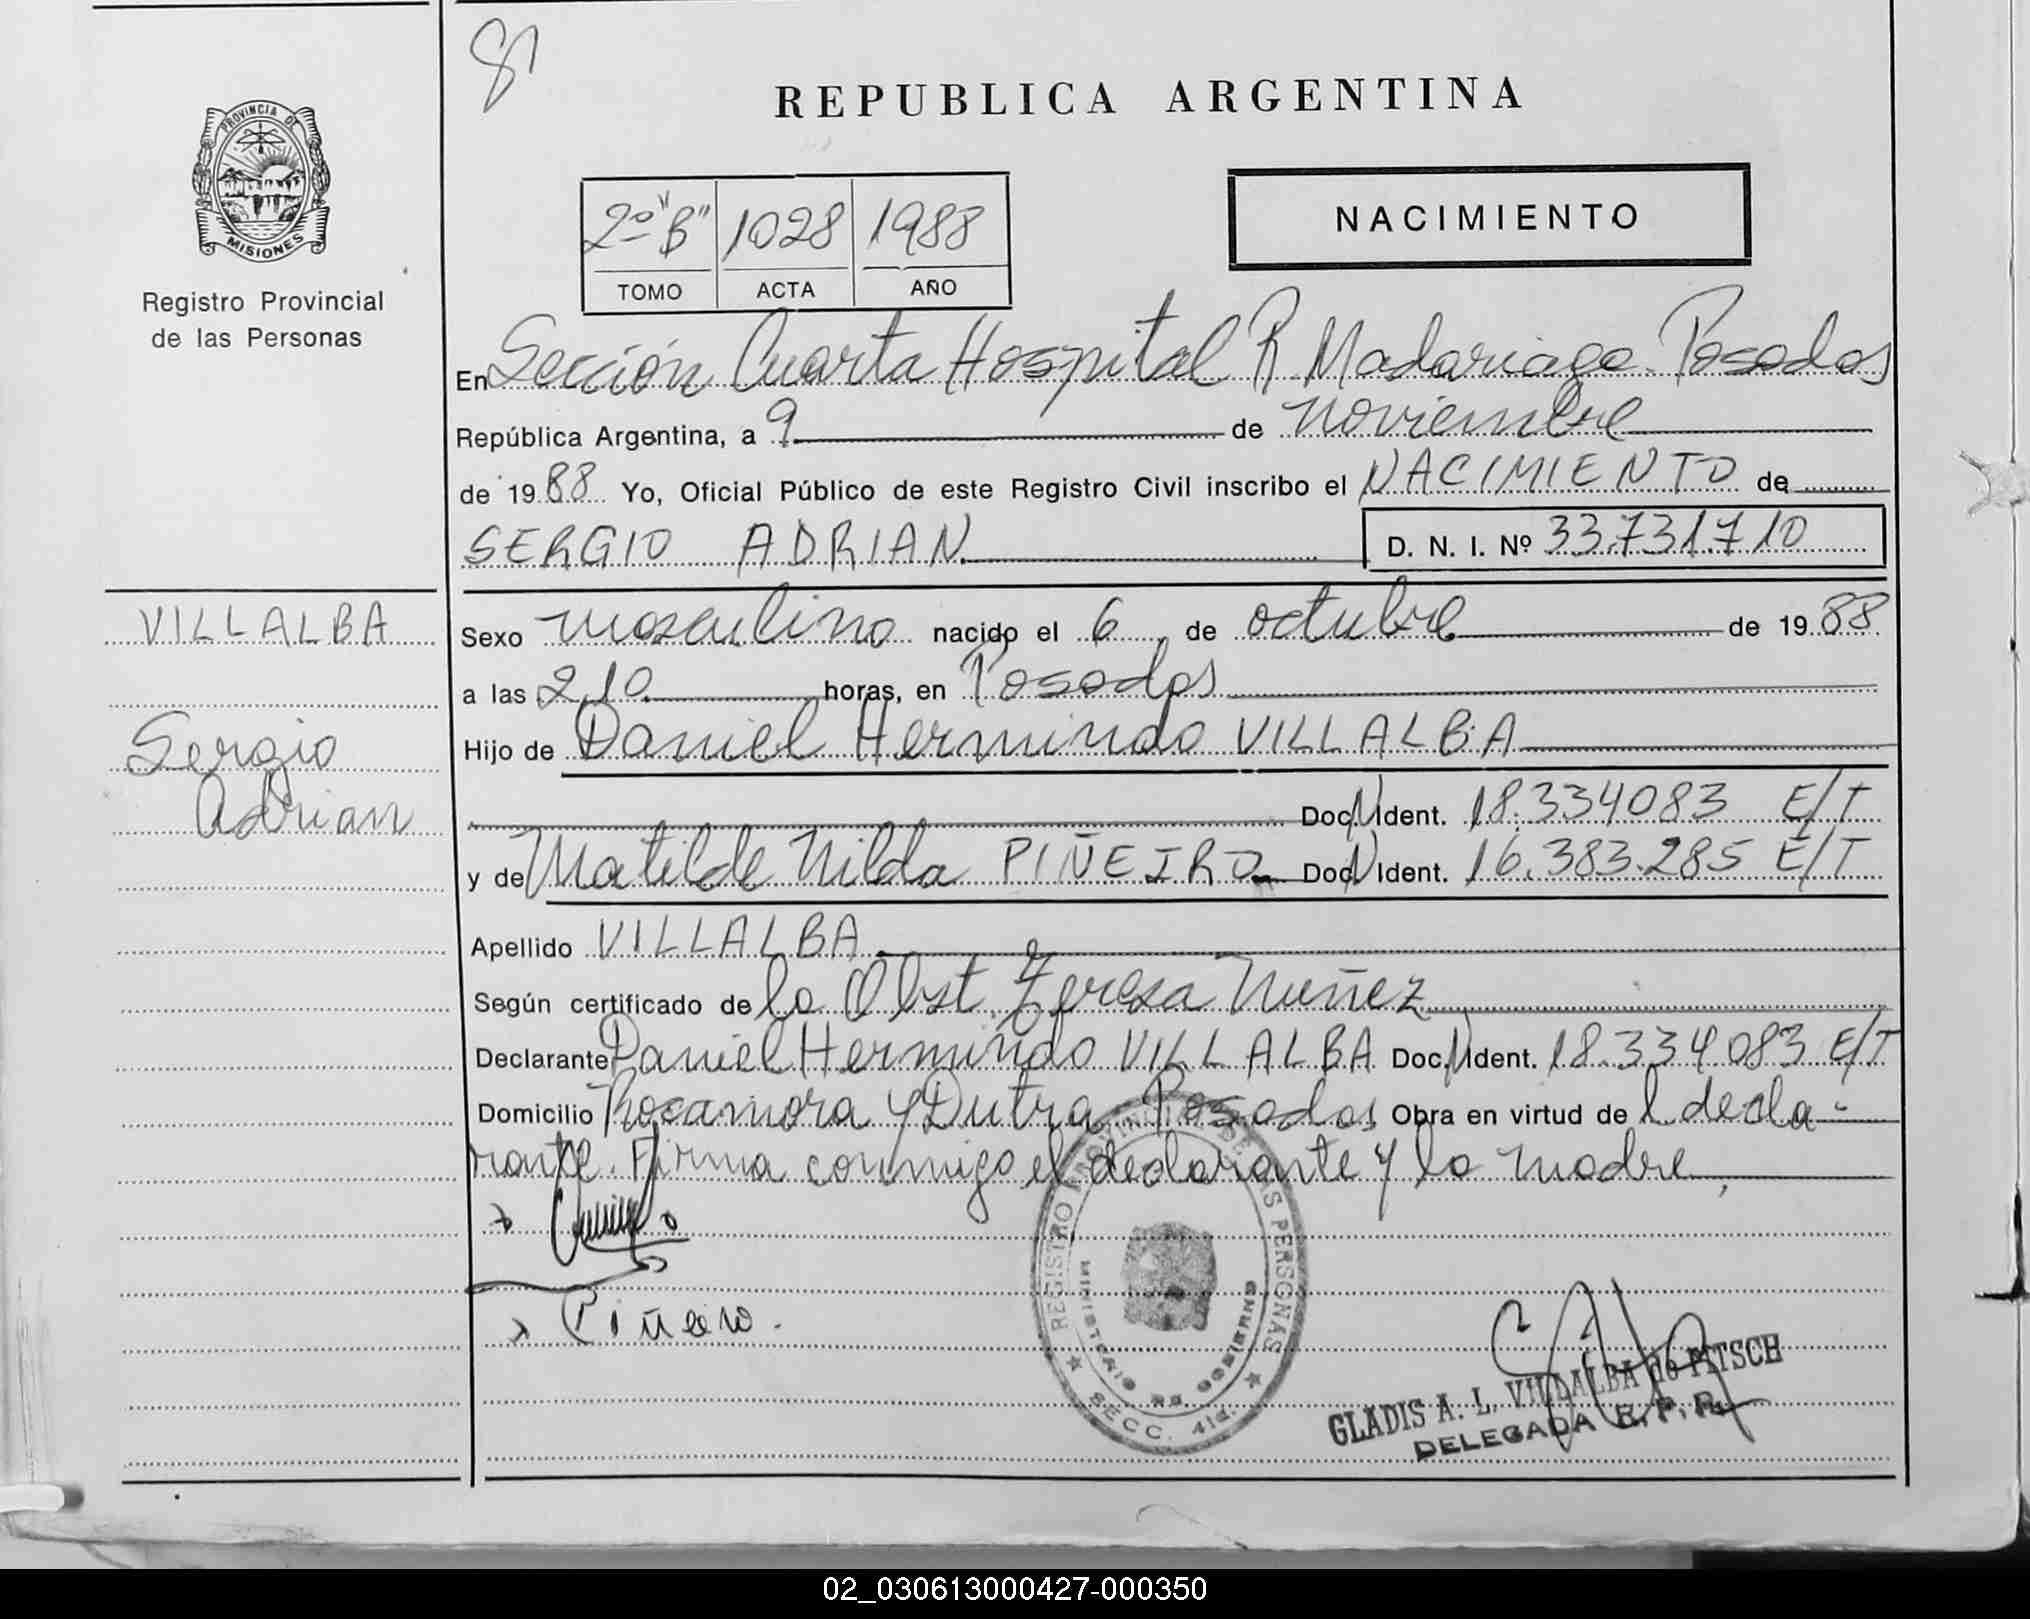 81
REPUBLICA ARGENTINA
PROVINCIA DE
MISIONES
Registro Provincial
de las Personas
2º "B" 1028 1988
TOMO ACTA AÑO
NACIMIENTO
En Sección Cuarta Hospital R Madariaga. Posadas
República Argentina, a 9 de noviembre
de 1988 Yo, Oficial Público de este Registro Civil inscribo el NACIMIENTO de
SERGIO ADRIAN D. N. I. Nº 33.731.710
VILLALBA
Sergio
Adrian
Sexo masculino nacido el 6 de octubre de 1988
a las 2,10 horas, en Posadas
Hijo de Daniel Hermindo VILLALBA
Doc. N Ident. 18.334083 E/T
y de Matilde Nilda PIÑEIRO Doc. N Ident. 16.383.285 E/T
Apellido VILLALBA
Según certificado de la Obst. Teresa Nuñez
Declarante Daniel Hermindo VILLALBA Doc. N Ident. 18.334083 E/T
Domicilio Rocamora y Dutra Posadas Obra en virtud de l decla-
rante. Firma conmigo el declarante y la madre
Piñeiro.
REGISTRO PROVINCIAL DE LAS PERSONAS
MINISTERIO DE GOBIERNO
SECC. 4ta.
GLADIS A. L. VILLALBA de PITSCH
DELEGADA R. P. P.
02_030613000427-000350